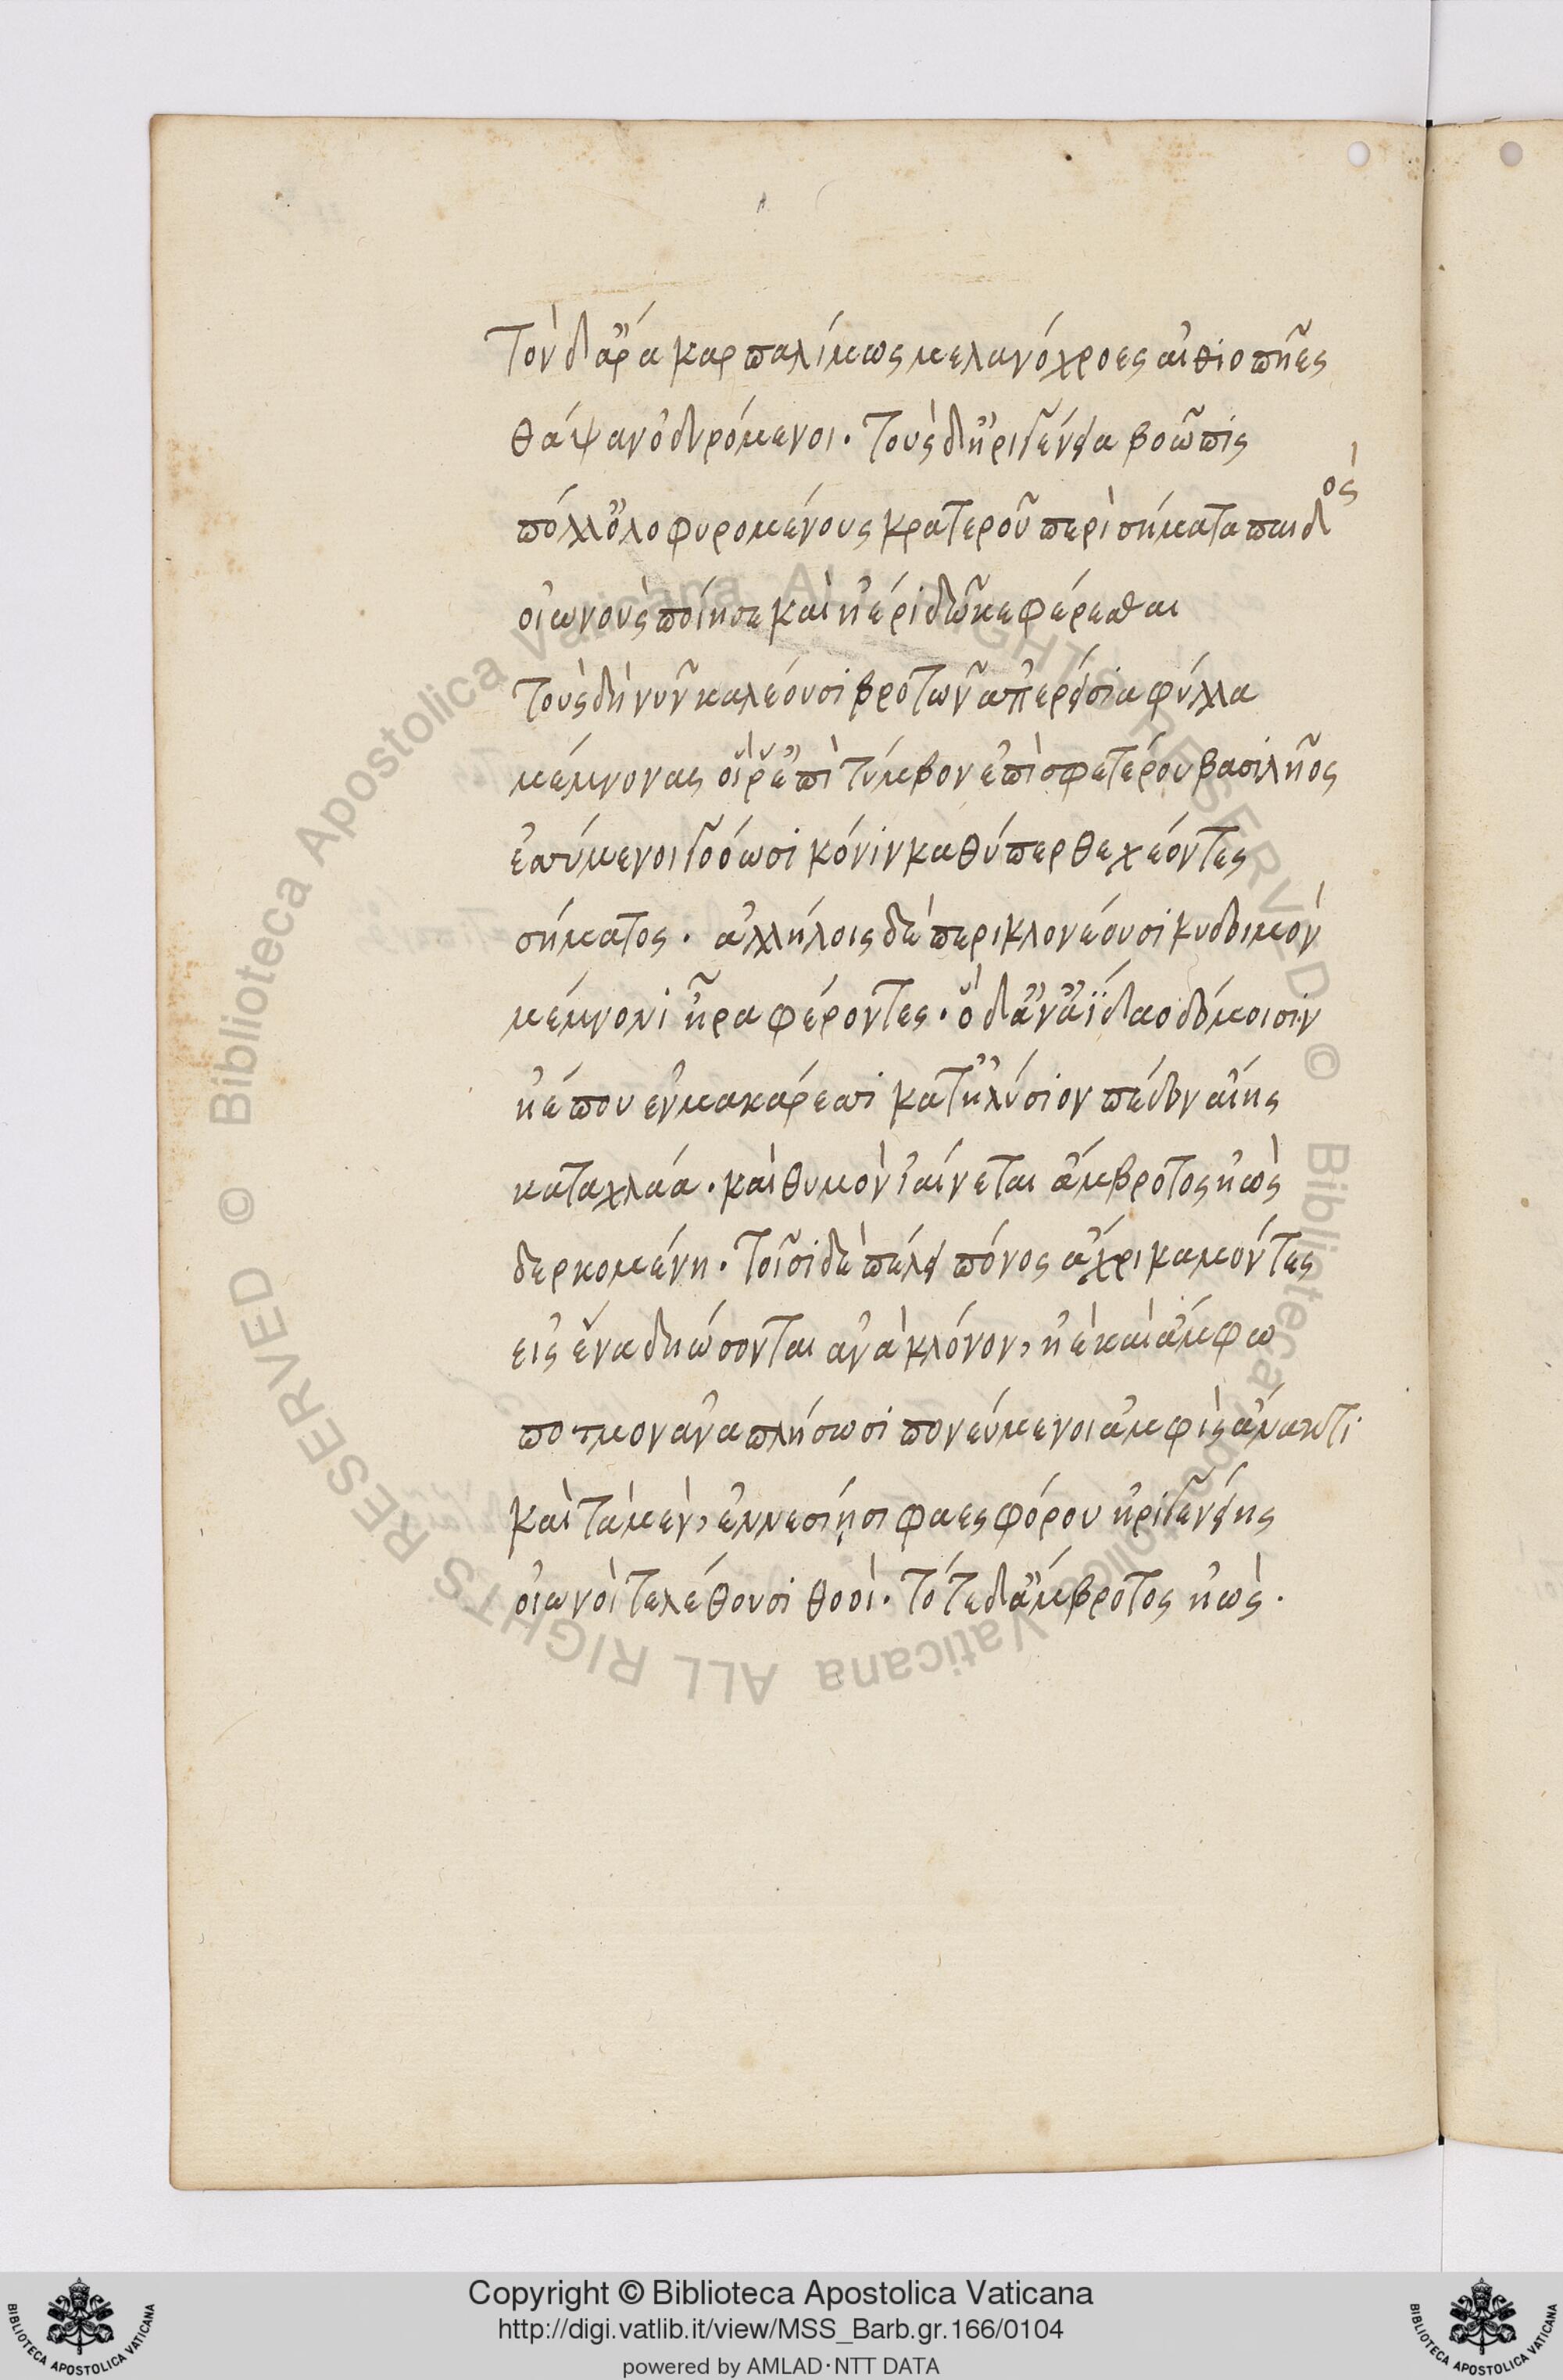 Τὸν δ' ἄρα καρπαλίμως μελανόχροες αἰθιοπῆες
θάψαν ὀδυρόμενοι. τοὺς δ' ἠριγένεια βοῶπις
πόλλ' ὀλοφυρομένους κρατεροῦ περὶ σήματα παιδὸς
οἰωνοὺς ποίησε καὶ ἠέρι δῶκε φέρεσθαι
τοὺς δὴ νῦν καλέουσι βροτῶν ἀπερείσια φύλλα
μέμνονας οἵ ῥ' ἐπὶ τύμβον ἐπὶ σφετέρου βασιλῆος
ἐσσύμενοι γοόωσι κόνιν καθύπερθε χέοντες
σήματος. ἀλλήλοις δὲ περικλονέουσι κυδοιμὸν
μέμνονι ἦρα φέροντες. ὁ δ' ἂν ἀΐδαο δόμοισιν
ἠέ που ἐν μακάρεσσι κατ' ἠλύσιον πέδον αἴης
καταχλαά. καὶ θυμὸν ἰαίνεται ἄμβροτος ἠὼς
δερκομένη. τοῖσι δὲ πέλει πόνος ἄχρι καμόντες
εἷς ἕνα δηώσονται ἀνὰ κλόνον, ἠὲ καὶ ἄμφω
πότμον ἀναπλήσωσι πονεύμενοι ἀμφὶς ἄνακτι
καὶ τὰ μὲν, ἐννεσίῃσι φαεσφόρου ἠριγενείης
οἰωνοὶ τελέθουσι θοοὶ. τότε δ' ἄμβροτος ἠὼς.
Copyright © Biblioteca Apostolica Vaticana
http://digi.vatlib.it/view/MSS_Barb.gr.166/0104
powered by AMLAD·NTT DATA
BIBLIOTECA APOSTOLICA VATICANA
BIBLIOTECA APOSTOLICA VATICANA
© Biblioteca Apostolica Vaticana ALL RIGHTS RESERVED © Biblioteca Apostolica Vaticana ALL RIGHTS RESERVED